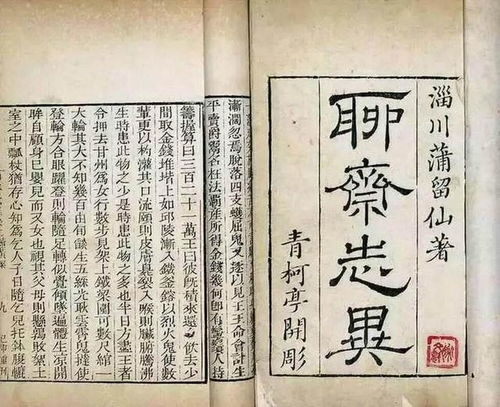 淄川蒲留仙著
聊齋志異
青柯亭開彫
漸濶忽焉脫落四支蠖屈鬼又逐以見王王命會計生
平賣爵鬻名枉法覇產所得金錢幾何即有鬚人持
籌握算曰三百二十一萬王曰彼既積來還令飲去少
間取金錢堆堦上如邱陵漸入鐵釜鎔以烈火鬼使數
輩更以杓灌其口流頤則皮膚臭裂入喉則臟腑騰沸
生時患此物之少是時患此物之多也半日方盡王者
令押去甘州為女行數步見架上鐵梁圍可數尺綰一
大輪其大不知幾百由旬燄生五綵光耿雲霄鬼撻使
登輪方合眼躍登則輪隨足轉似覺傾墜遍體生凉開
眸自顧身已嬰兒而又女也視其父母則懸鶉敗絮土
室之中瓢杖猶存心知為乞人子日隨乞兒托鉢腹轆